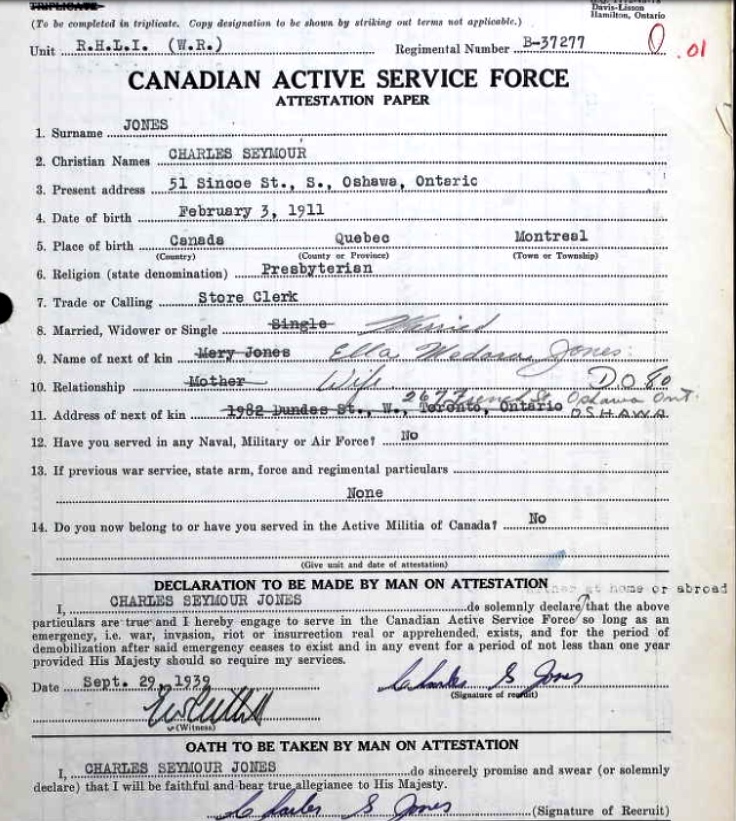 TRIPLICATE
(To be completed in triplicate. Copy designation to be shown by striking out terms not applicable.)
Davis-Lisson
Hamilton, Ontario
Unit R.H.L.I. (W.R.) Regimental Number B-37277
.01
CANADIAN ACTIVE SERVICE FORCE
ATTESTATION PAPER
1. Surname JONES
2. Christian Names CHARLES SEYMOUR
3. Present address 51 Simcoe St., S., Oshawa, Ontario
4. Date of birth February 3, 1911
5. Place of birth Canada Quebec Montreal
(Country) (County or Province) (Town or Township)
6. Religion (state denomination) Presbyterian
7. Trade or Calling Store Clerk
8. Married, Widower or Single Single Married
9. Name of next of kin Mary Jones Ella Medora Jones
10. Relationship Mother Wife DO80
267 French St Oshawa Ont.
11. Address of next of kin 1982 Dundas St., W., Toronto, Ontario OSHAWA
12. Have you served in any Naval, Military or Air Force? No
13. If previous war service, state arm, force and regimental particulars
None
14. Do you now belong to or have you served in the Active Militia of Canada? No
(Give unit and date of attestation)
DECLARATION TO BE MADE BY MAN ON ATTESTATION
either at home or abroad
I, CHARLES SEYMOUR JONES do solemnly declare that the above
particulars are true and I hereby engage to serve in the Canadian Active Service Force so long as an
emergency, i.e. war, invasion, riot or insurrection real or apprehended, exists, and for the period of
demobilization after said emergency ceases to exist and in any event for a period of not less than one year
provided His Majesty should so require my services.
Date Sept. 29, 1939 Charles S Jones
(Signature of recruit)
(Witness)
OATH TO BE TAKEN BY MAN ON ATTESTATION
I, CHARLES SEYMOUR JONES do sincerely promise and swear (or solemnly
declare) that I will be faithful and bear true allegiance to His Majesty.
Charles S Jones (Signature of Recruit)